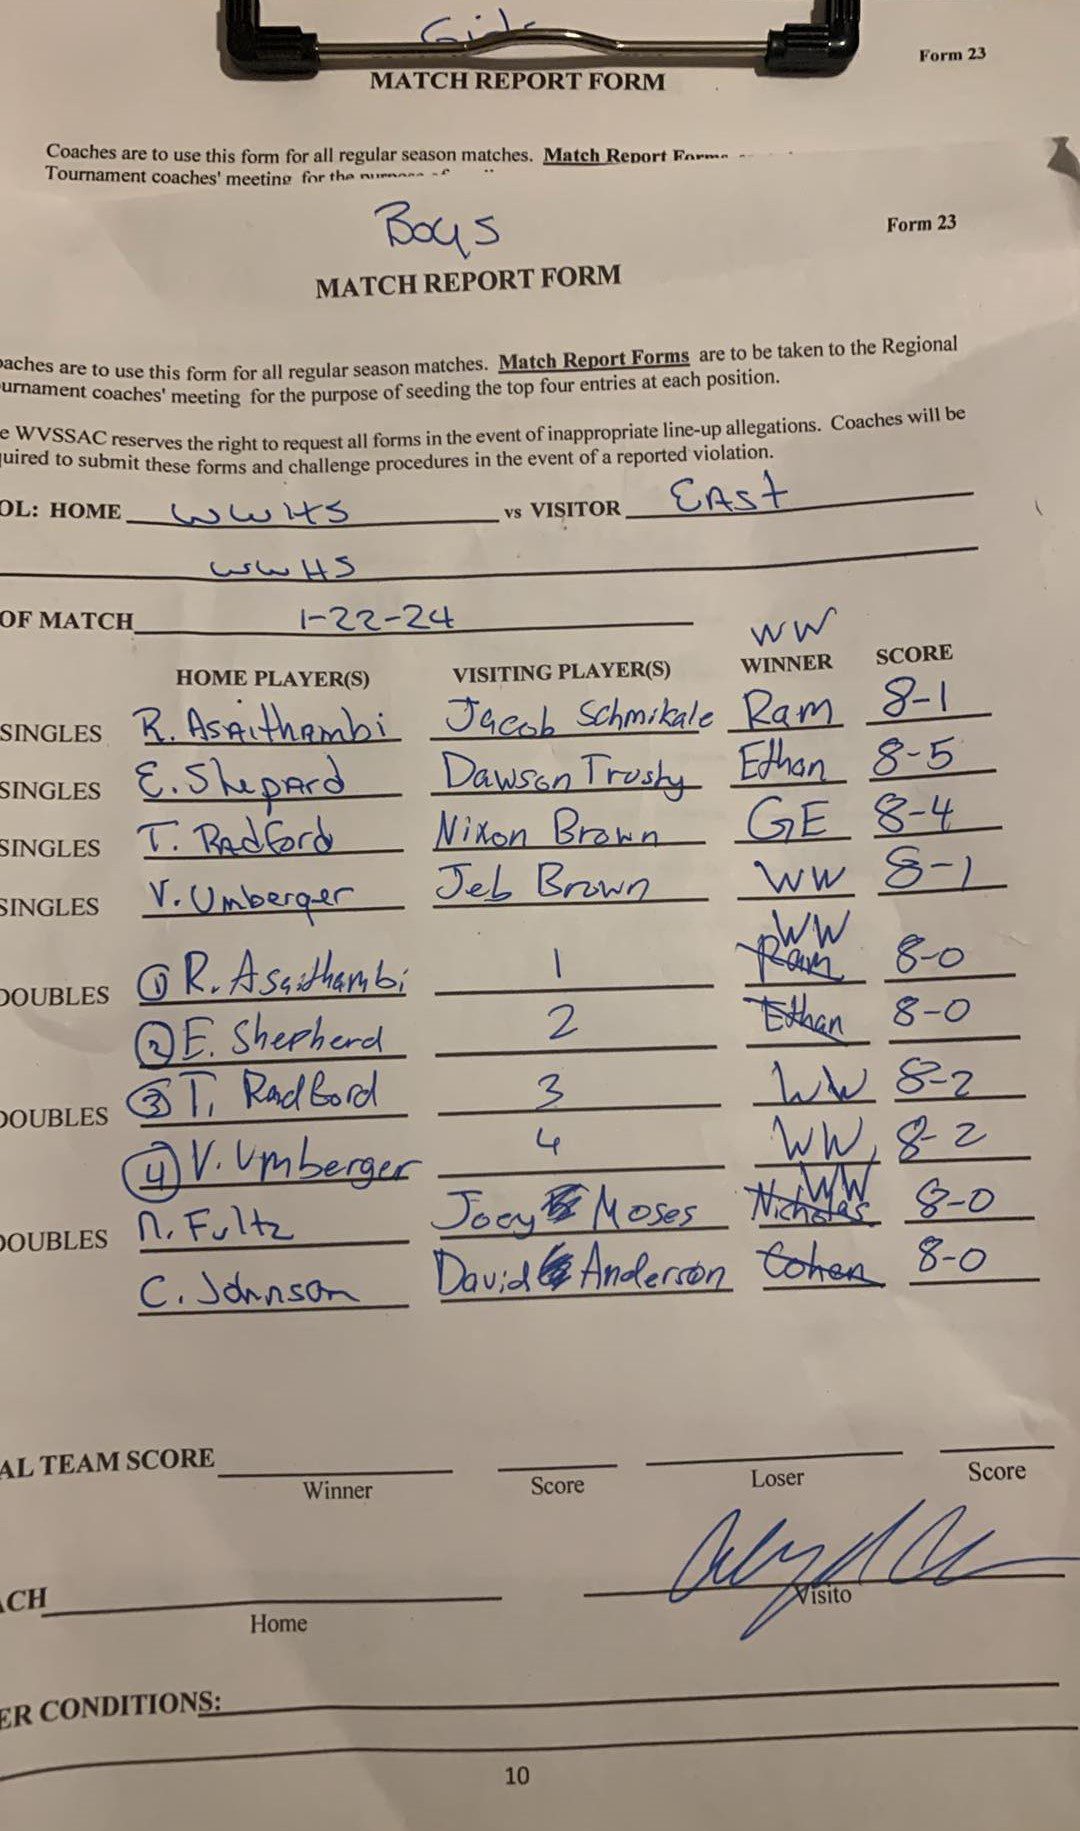 Girls
Form 23
MATCH REPORT FORM
Coaches are to use this form for all regular season matches. Match Report Forms
Tournament coaches' meeting for the purpose of
Boys
Form 23
MATCH REPORT FORM
oaches are to use this form for all regular season matches. Match Report Forms are to be taken to the Regional
urnament coaches' meeting for the purpose of seeding the top four entries at each position.
e WVSSAC reserves the right to request all forms in the event of inappropriate line-up allegations. Coaches will be
quired to submit these forms and challenge procedures in the event of a reported violation.
OL: HOME WWHS vs VISITOR EAST
WWHS
OF MATCH 1-22-24
WW
HOME PLAYER(S) VISITING PLAYER(S) WINNER SCORE
SINGLES R. Asaithambi Jacob Schmikale Ram 8-1
SINGLES E. Shepard Dawson Trushy Ethan 8-5
SINGLES T. Radford Nixon Brown GE 8-4
SINGLES V. Umberger Jeb Brown WW 8-1
WW
DOUBLES 1 R. Asaithambi 1 Ram 8-0
2 E. Shepherd 2 Ethan 8-0
DOUBLES 3 T. Radford 3 WW 8-2
4 V. Umberger 4 WW 8-2
DOUBLES N. Fultz Joey Moses Nicholas WW 8-0
C. Johnson David Anderson Cohen 8-0
AL TEAM SCORE
Winner Score Loser Score
ACH
Home Visito
ER CONDITIONS:
10